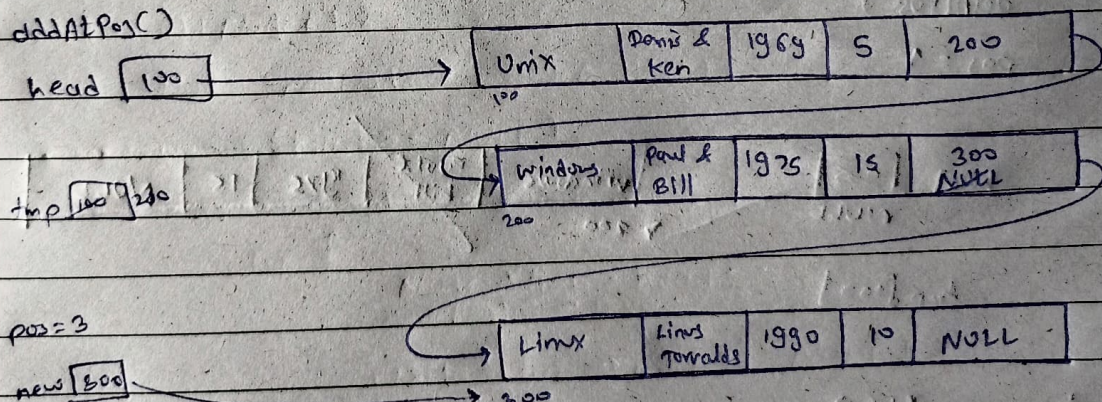 addAtPos()
head 100 Unix Denis & Ken 1969 5 200
100
tmp 100 200 windows Paul & Bill 1975 15 300 NULL
200
pos=3
Linux Linus Torvalds 1990 10 NULL
new 300
300